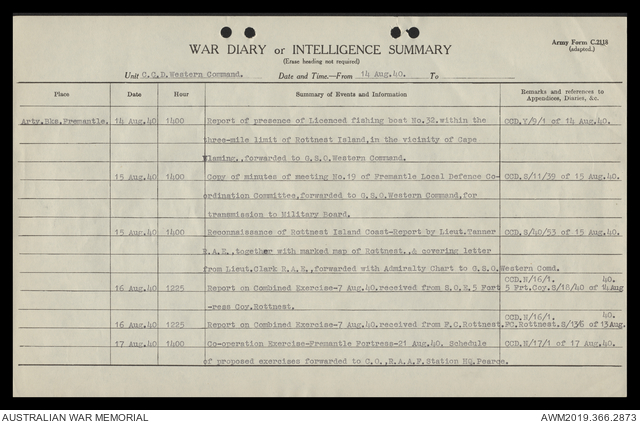 WAR DIARY or INTELLIGENCE SUMMARY
Army Form C.2118
(adapted.)
(Erase heading not required)
Unit C.C.D.Western Command. Date and Time.—From 14 Aug.40. To
Place Date Hour Summary of Events and Information Remarks and references to
Appendices, Diaries, &c.
Arty.Bks.Fremantle. 14 Aug.40 1400 Report of presence of Licenced fishing boat No.32.within the CCD.Y/9/1 of 14 Aug.40.
three-mile limit of Rottnest Island,in the vicinity of Cape
Vlaming.,forwarded to G.S.O.Western Command.
15 Aug.40 1400 Copy of minutes of meeting No.19 of Fremantle Local Defence Co- CCD.S/11/39 of 15 Aug.40.
ordination Committee,forwarded to G.S.O.Western Command,for
transmission to Military Board.
15 Aug.40 1400 Reconnaissance of Rottnest Island Coast-Report by Lieut.Tanner CCD.S/40/53 of 15 Aug.40.
R.A.E.,together with marked map of Rottnest.,& covering letter
from Lieut.Clark R.A.E.,forwarded with Admiralty Chart to G.S.O.Western Comd.
CCD.N/16/1. 40.
16 Aug.40 1225 Report on Combined Exercise-7 Aug.40.received from S.O.E.5 Fort 5 Frt.Coy.S/18/40 of 14 Aug
-ress Coy.Rottnest.
CCD.N/16/1. 40.
16 Aug.40 1225 Report on Combined Exercise-7 Aug.40.received from F.C.Rottnest. FC.Rottnest.S/13/6 of 13 Aug.
17 Aug.40 1400 Co-operation Exercise-Fremantle Fortress-21 Aug.40. Schedule CCD.N/17/1 of 17 Aug.40.
of proposed exercises forwarded to C.O.,R.A.A.F.Station HQ.Pearce.
AUSTRALIAN WAR MEMORIAL
AWM2019.366.2873